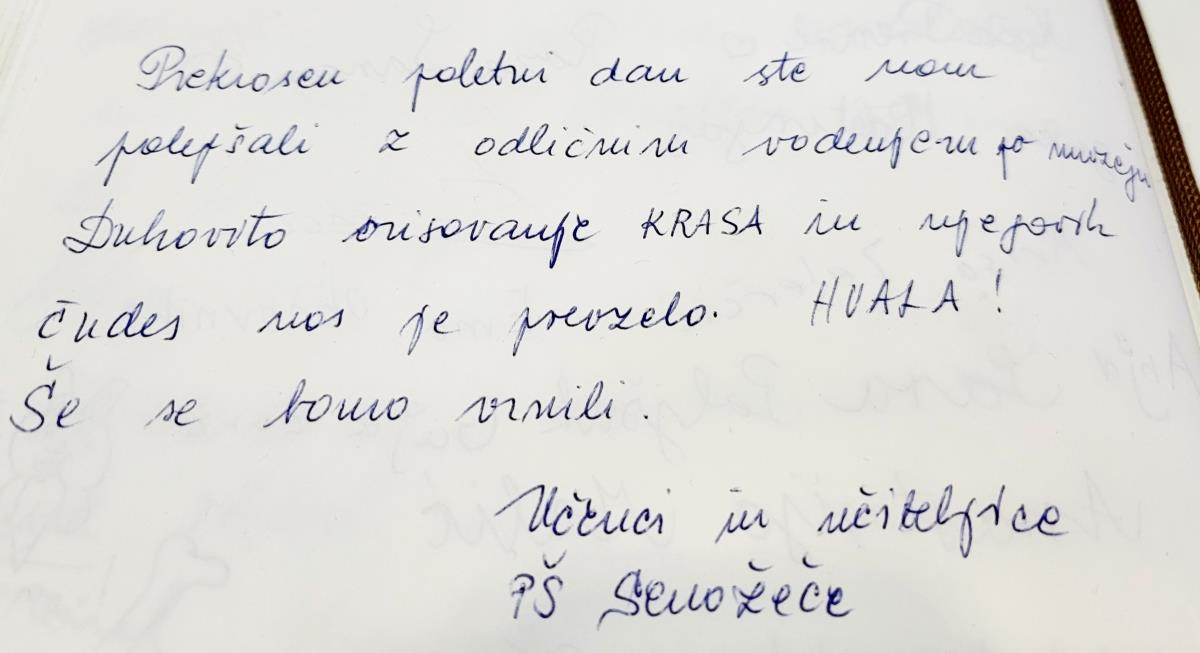 Prekrasen poletni dan ste nam
polepšali z odličnim vodenjem po muzeju
Duhovito orisovanje KRASA in njegovih
čudes nas je prevzelo. HVALA!
Še se bomo vrnili.
Učenci in učiteljice
PŠ Senožeče